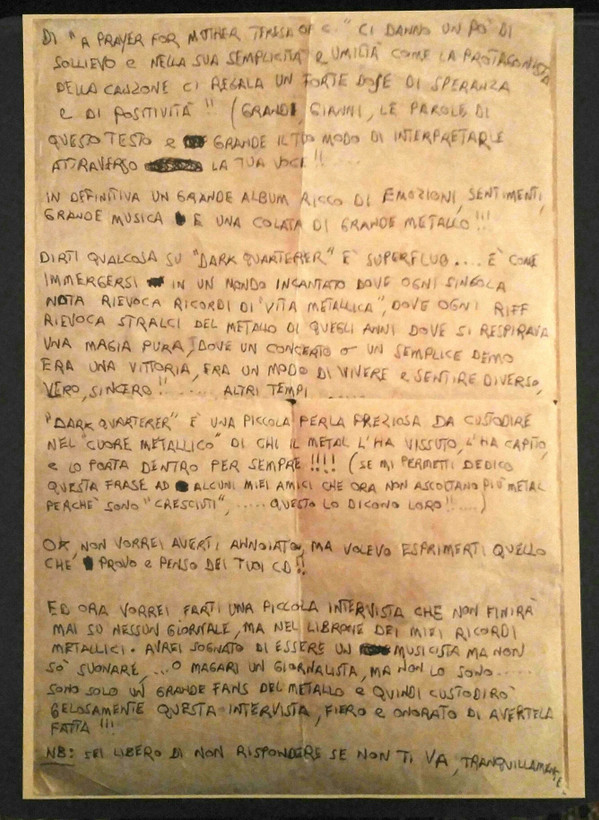 DI "A PRAYER FOR MOTHER TERESA OF C." CI DANNO UN PO' DI
SOLLIEVO E NELLA SUA SEMPLICITÀ E UMILTÀ COME LA PROTAGONISTA
DELLA CANZONE CI REGALA UN FORTE DOSE DI SPERANZA
E DI POSITIVITÀ" (GRANDE GIANNI, LE PAROLE DI
QUESTO TESTO E GRANDE IL TUO MODO DI INTERPRETARLE
ATTRAVERSO LA TUA VOCE!! .....
IN DEFINITIVA UN GRANDE ALBUM RICCO DI EMOZIONI, SENTIMENTI,
GRANDE MUSICA E UNA COLATA DI GRANDE METALLO!!!
DIRTI QUALCOSA SU "DARK QUARTERER" È SUPERFLUO.... È COME
IMMERGERSI IN UN MONDO INCANTATO DOVE OGNI SINGOLA
NOTA RIEVOCA RICORDI DI "VITA METALLICA", DOVE OGNI RIFF
RIEVOCA STRALCI DEL METALLO DI QUEGLI ANNI DOVE SI RESPIRAVA
UNA MAGIA PURA, DOVE UN CONCERTO O UN SEMPLICE DEMO
ERA UNA VITTORIA, ERA UN MODO DI VIVERE E SENTIRE DIVERSO,
VERO, SINCERO!! ..... ALTRI TEMPI .....
"DARK QUARTERER" È UNA PICCOLA PERLA PREZIOSA DA CUSTODIRE
NEL "CUORE METALLICO" DI CHI IL METAL L'HA VISSUTO, L'HA CAPITO,
E LO PORTA DENTRO PER SEMPRE!!!! (SE MI PERMETTI DEDICO
QUESTA FRASE AD ALCUNI MIEI AMICI CHE ORA NON ASCOLTANO PIÙ METAL
PERCHÈ SONO "CRESCIUTI", ..... QUESTO LO DICONO LORO!! .....)
OK, NON VORREI AVERTI ANNOIATO, MA VOLEVO ESPRIMERTI QUELLO
CHE PROVO E PENSO DEI TUOI CD!!
ED ORA VORREI FARTI UNA PICCOLA INTERVISTA CHE NON FINIRÀ
MAI SU NESSUN GIORNALE, MA NEL LIBRONE DEI MIEI RICORDI
METALLICI. AVREI SOGNATO DI ESSERE UN MUSICISTA MA NON
SO' SUONARE, ...O MAGARI UN GIORNALISTA, MA NON LO SONO.....
SONO SOLO UN GRANDE FANS DEL METALLO E QUINDI CUSTODIRO'
GELOSAMENTE QUESTA INTERVISTA, FIERO E ONORATO DI AVERTELA
FATTA!!!
NB: SEI LIBERO DI NON RISPONDERE SE NON TI VA, TRANQUILLAMENTE.